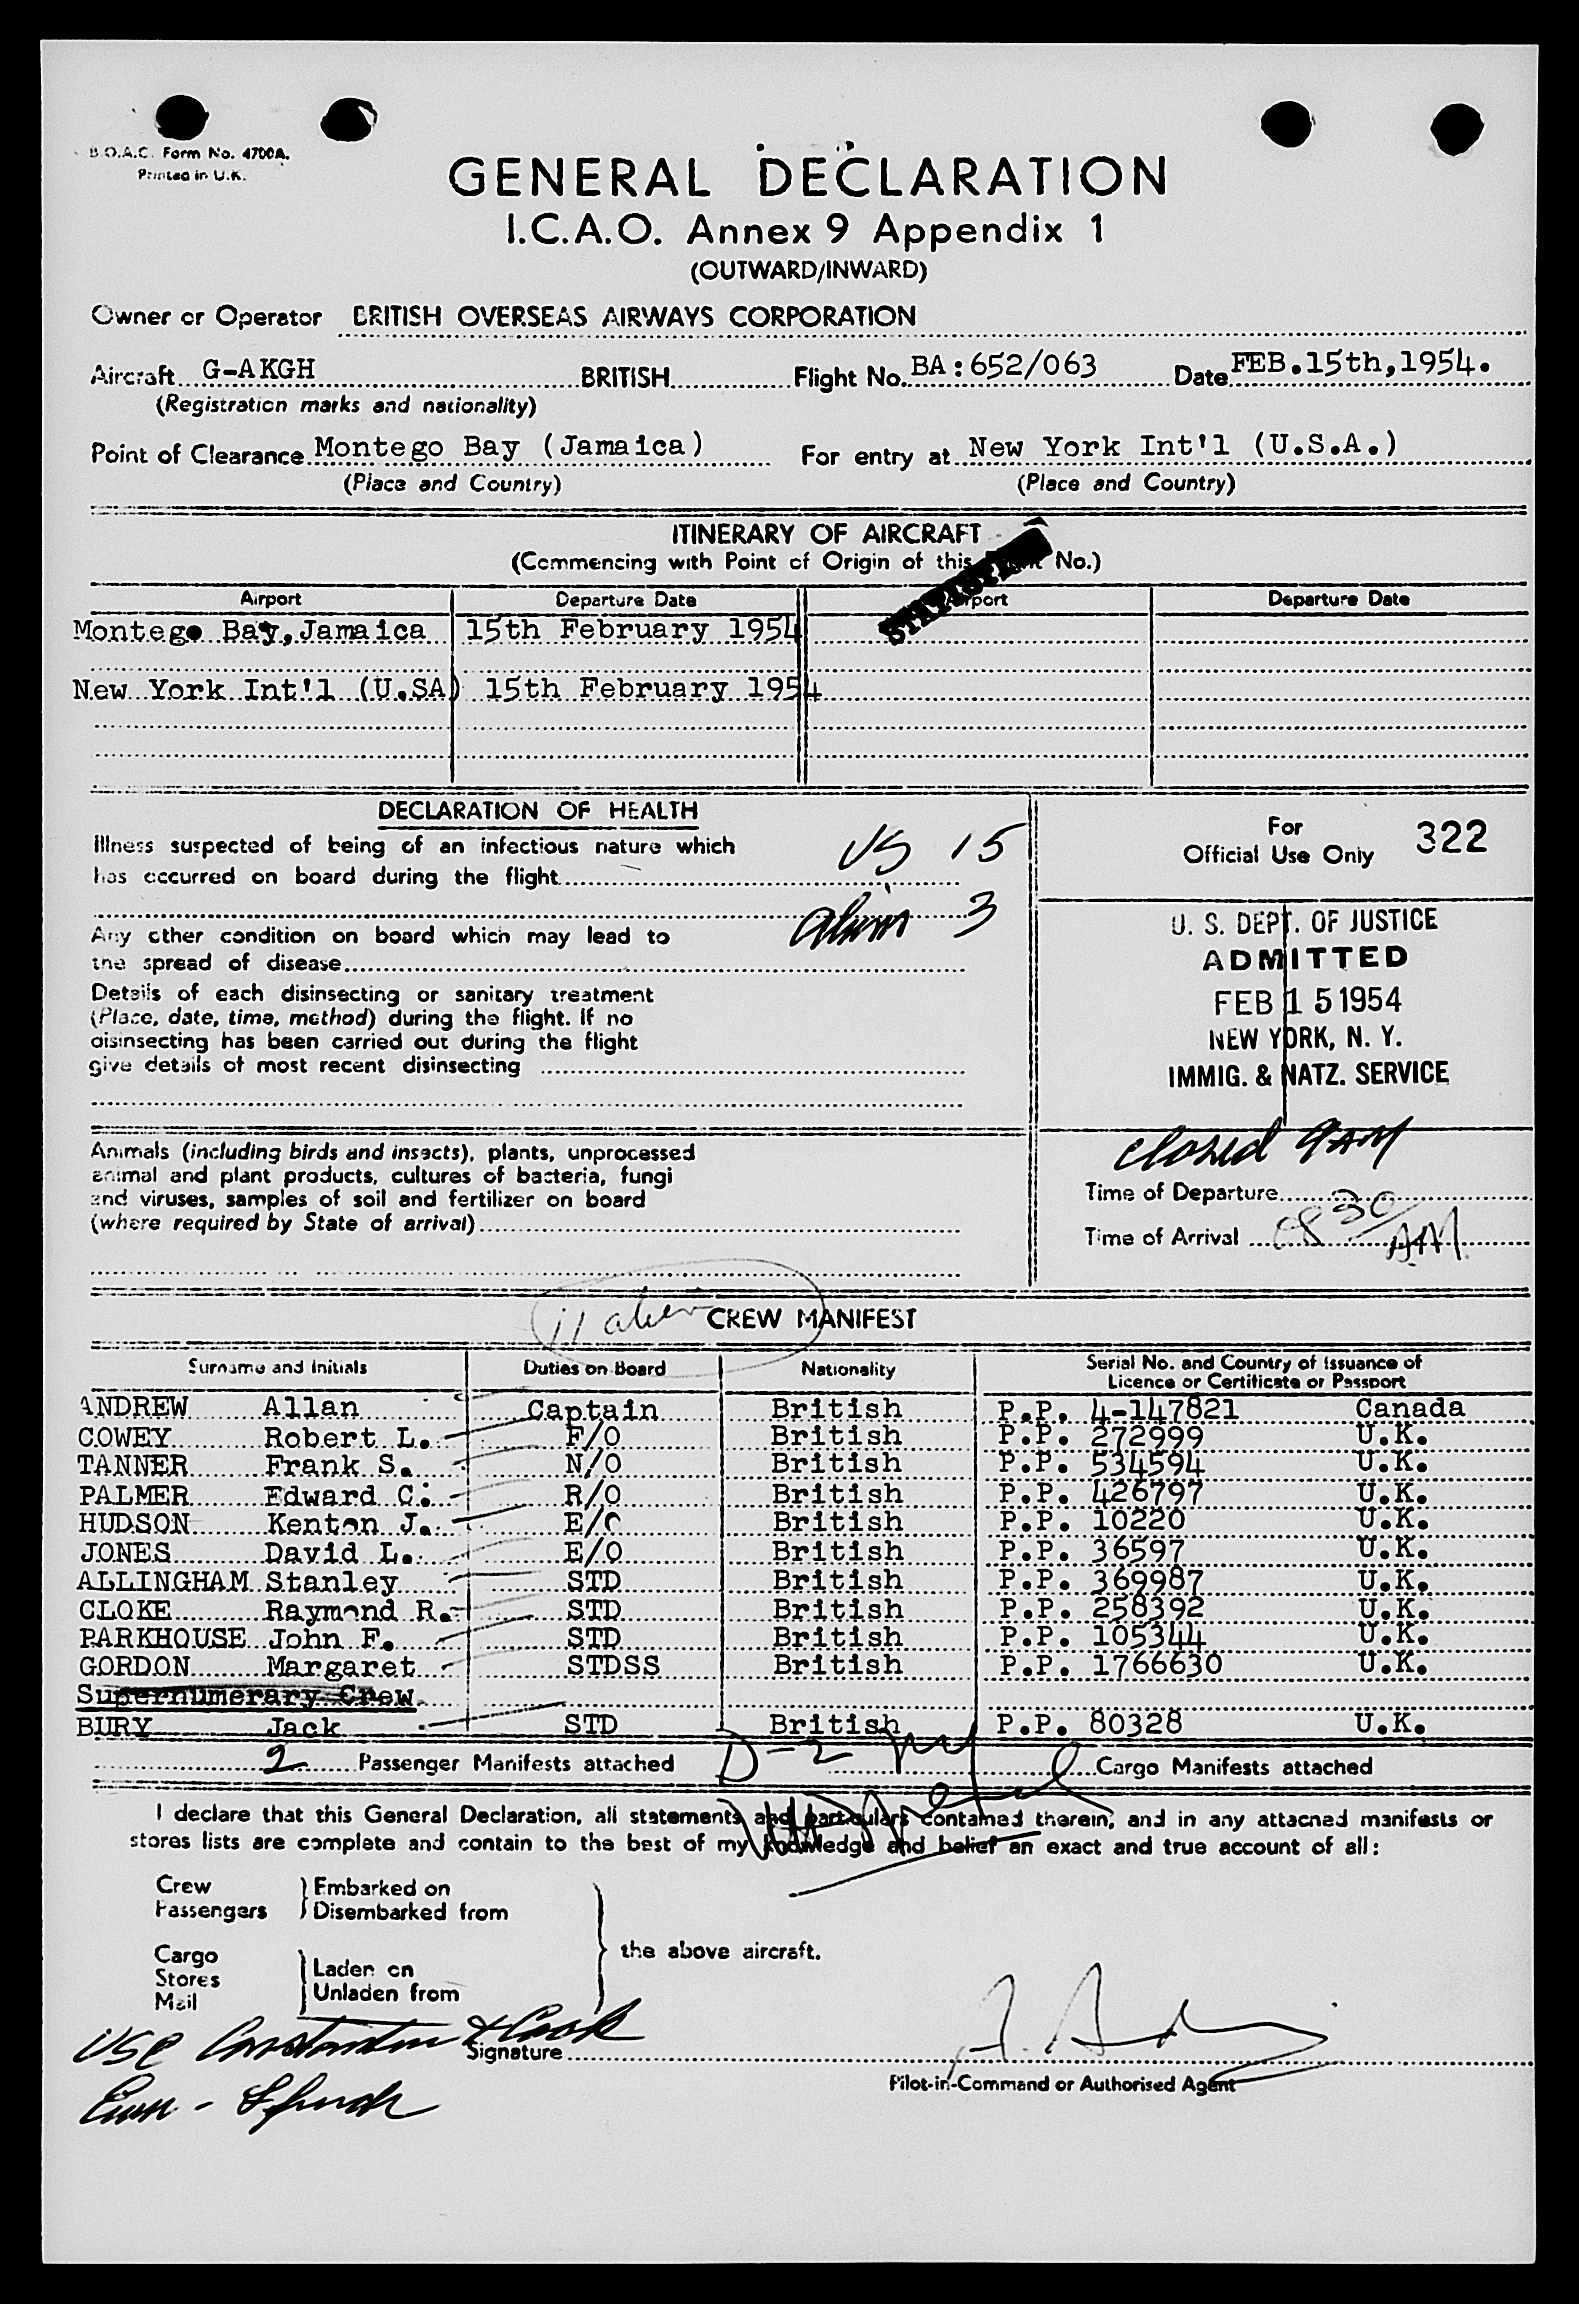 B.O.A.C. Form No. 4700A.
Printed in U.K.
GENERAL DECLARATION
I.C.A.O. Annex 9 Appendix 1
(OUTWARD/INWARD)
Owner or Operator BRITISH OVERSEAS AIRWAYS CORPORATION
Aircraft G-AKGH BRITISH Flight No. BA:652/063 Date FEB.15th,1954.
(Registration marks and nationality)
Point of Clearance Montego Bay (Jamaica) For entry at New York Int'l (U.S.A.)
(Place and Country) (Place and Country)
ITINERARY OF AIRCRAFT
(Commencing with Point of Origin of this No.)
Airport Departure Date Airport Departure Date
Montego Bay, Jamaica 15th February 1954
New York Int'l (U.SA) 15th February 1954
DECLARATION OF HEALTH
Illness suspected of being of an infectious nature which
has occurred on board during the flight
US 15
Alien 3
Any other condition on board which may lead to
the spread of disease
Details of each disinsecting or sanitary treatment
(Place, date, time, method) during the flight. If no
disinsecting has been carried out during the flight
give details of most recent disinsecting
For
Official Use Only 322
U. S. DEPT. OF JUSTICE
ADMITTED
FEB 15 1954
NEW YORK, N. Y.
IMMIG. & NATZ. SERVICE
Animals (including birds and insects), plants, unprocessed
animal and plant products, cultures of bacteria, fungi
and viruses, samples of soil and fertilizer on board
(where required by State of arrival)
closed 9AM
Time of Departure
Time of Arrival 0830 AM
11 alien
CREW MANIFEST
Surname and Initials Duties on Board Nationality Serial No. and Country of Issuance of
Licence or Certificate or Passport
ANDREW Allan Captain British P.P. 4-147821 Canada
COWEY Robert L. F/O British P.P. 272999 U.K.
TANNER Frank S. N/O British P.P. 534594 U.K.
PALMER Edward C. R/O British P.P. 426797 U.K.
HUDSON Kenton J. E/O British P.P. 10220 U.K.
JONES David L. E/O British P.P. 36597 U.K.
ALLINGHAM Stanley STD British P.P. 369987 U.K.
CLOKE Raymond R. STD British P.P. 258392 U.K.
PARKHOUSE John F. STD British P.P. 105344 U.K.
GORDON Margaret STDSS British P.P. 1766630 U.K.
Supernumerary Crew
BURY Jack STD British P.P. 80328 U.K.
2 Passenger Manifests attached D-2 Cargo Manifests attached
I declare that this General Declaration, all statements and particulars contained therein, and in any attached manifests or
stores lists are complete and contain to the best of my knowledge and belief an exact and true account of all:
Crew
Passengers
Embarked on
Disembarked from
Cargo
Stores
Mail
Laden on
Unladen from
the above aircraft.
Signature
Pilot-in-Command or Authorised Agent